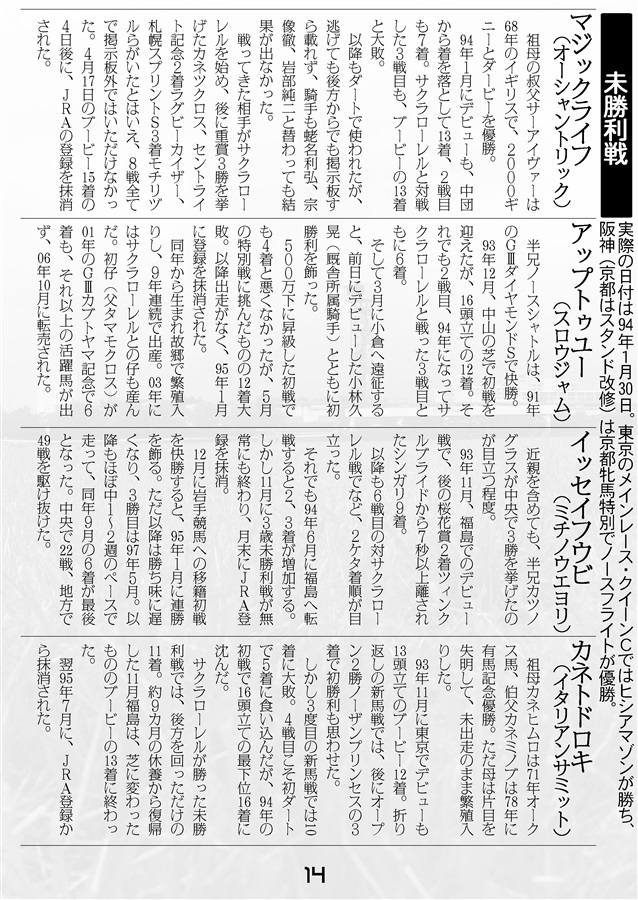 未勝利戦
実際の日付は94年1月30日。東京のメインレース・クイーンCではヒシアマゾンが勝ち、
阪神(京都はスタンド改修)は京都牝馬特別でノースフライトが優勝。
マジックライフ
(オーシャントリック)
祖母の叔父サーアイヴァーは
68年のイギリスで、2000ギ
ニーとダービーを優勝。
94年1月にデビューも、中団
から着を落として13着、2戦目
も7着。サクラローレルと対戦
した3戦目も、ブービーの13着
と大敗。
以降もダートで使われたが、
逃げても後方からでも掲示板す
ら載れず、騎手も蛯名利弘、宗
像徹、岩部純二と替わっても結
果が出なかった。
戦ってきた相手がサクラロー
レルを始め、後に重賞3勝を挙
げたカネツクロス、セントライ
ト記念2着ラグビーカイザー、
札幌スプリントS3着モチリヅ
ルらがいたとはいえ、8戦全て
で掲示板外ではいただけなかっ
た。4月17日のブービー15着の
4日後に、JRAの登録を抹消
された。
アップトゥユー
(スロウジャム)
半兄ノースシャトルは、91年
のGⅢダイヤモンドSで快勝。
93年12月、中山の芝で初戦を
迎えたが、16頭立ての12着。そ
れでも2戦目、94年になってサ
クラローレルと戦った3戦目と
もに6着。
そして3月に小倉へ遠征する
と、前日にデビューした小林久
晃(厩舎所属騎手)とともに初
勝利を飾った。
500万下に昇級した初戦で
も4着と悪くなかったが、5月
の特別戦に挑んだものの12着大
敗。以降出走がなく、95年1月
に登録を抹消された。
同年から生まれ故郷で繁殖入
りし、9年連続で出産。03年に
はサクラローレルとの仔も産ん
だ。初仔(父タマモクロス)が
01年のGⅢカブトヤマ記念で6
着も、それ以上の活躍馬が出
ず、06年10月に転売された。
イッセイフウビ
(ミチノウエヨリ)
近親を含めても、半兄カツノ
グラスが中央で3勝を挙げたの
が目立つ程度。
93年11月、福島でのデビュー
戦で、後の桜花賞2着ツィンク
ルブライドから7秒以上離され
たシンガリ9着。
以降も6戦目の対サクラロー
レル戦でなど、2ケタ着順が目
立った。
それでも94年6月に福島へ転
戦すると2、3着が増加する。
しかし11月に3歳未勝利戦が無
常にも終わり、月末にJRA登
録を抹消。
12月に岩手競馬への移籍初戦
を快勝すると、95年1月に連勝
を飾る。ただ以降は勝ち味に遅
くなり、3勝目は97年5月。以
降もほぼ中1～2週のペースで
走って、同年9月の6着が最後
となった。中央で22戦、地方で
49戦を駆け抜けた。
カネトドロキ
(イタリアンサミット)
祖母カネヒムロは71年オーク
ス馬、伯父カネミノブは78年に
有馬記念優勝。ただ母は片目を
失明して、未出走のまま繁殖入
りした。
93年11月に東京でデビューも
13頭立てのブービー12着。折り
返しの新馬戦では、後にオープ
ン2勝ノーザンプリンセスの3
着で初勝利も思わせた。
しかし3度目の新馬戦では10
着に大敗。4戦目こそ初ダート
で5着に食い込んだが、94年の
初戦で16頭立ての最下位16着に
沈んだ。
サクラローレルが勝った未勝
利戦では、後方を回っただけの
11着。約9カ月の休養から復帰
した11月福島は、芝に変わった
もののブービーの13着に終わっ
た。
翌95年7月に、JRA登録か
ら抹消された。
14